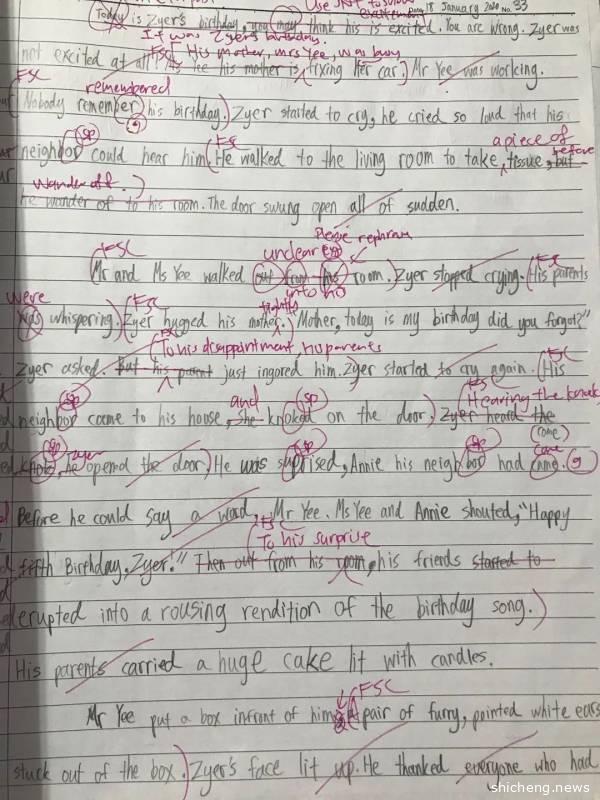 Use SVT to show
excitement
18 January 2020 No. 33
Today is Zyer's birthday, you may think his is excited. You are wrong. Zyer was
It was Zyer's birthday.
FSC His mother, mrs Yee, was busy
not excited at all. As fixing her car. Mr Yee was working.
FSC
remembered
Nobody remember his birthday. Zyer started to cry, he cried so loud that his
sp FSC a piece of before
neighbor could hear him. He walked to the living room to take tissue, but
Wander off.
he wander of to his room. The door swung open all of sudden.
Please rephrase
FSC unclear FSC
Mr and Ms Yee walked out from his room. Zyer stopped crying. His parents
into his
were FSC tightly
was whispering. Zyer hugged his mother. "Mother, today is my birthday did you forgot?"
To his disappointment, his parents
Zyer asked. But his parent just ingored him. Zyer started to cry again. His
FSC
sp and sp FSC Hearing the knock,
neighbor came to his house, she knoked on the door. Zyer heard the
sp zyer sp sp come
he opend the door. He was suprised, Annie his neighbor had
Before he could say a word, Mr Yee. Ms Yee and Annie shouted, "Happy
FSC
To his surprise
fifth Birthday. Zyer!" Then out from his room, his friends started to
erupted into a rousing rendition of the birthday song.
His parents carried a huge cake lit with candles.
FSC
Mr Yee put a box infront of him. A pair of furry, pointed white ears
stuck out of the box. Zyer's face lit up. He thanked everyone who had
shicheng.news